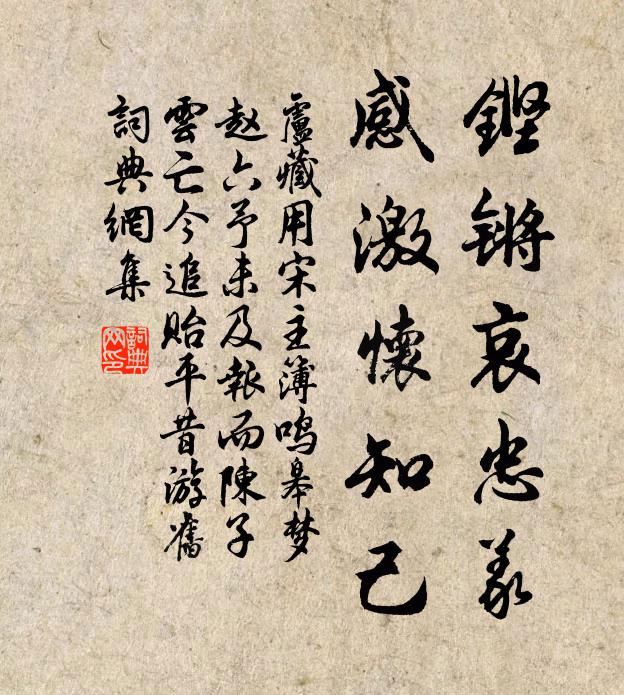 鏗锵哀忠義
感激懷知己
盧藏用宋主簿鳴皋梦
赵六予未及報而陳子
雲亡今追貽平昔游舊
詞典網集
詞典网印